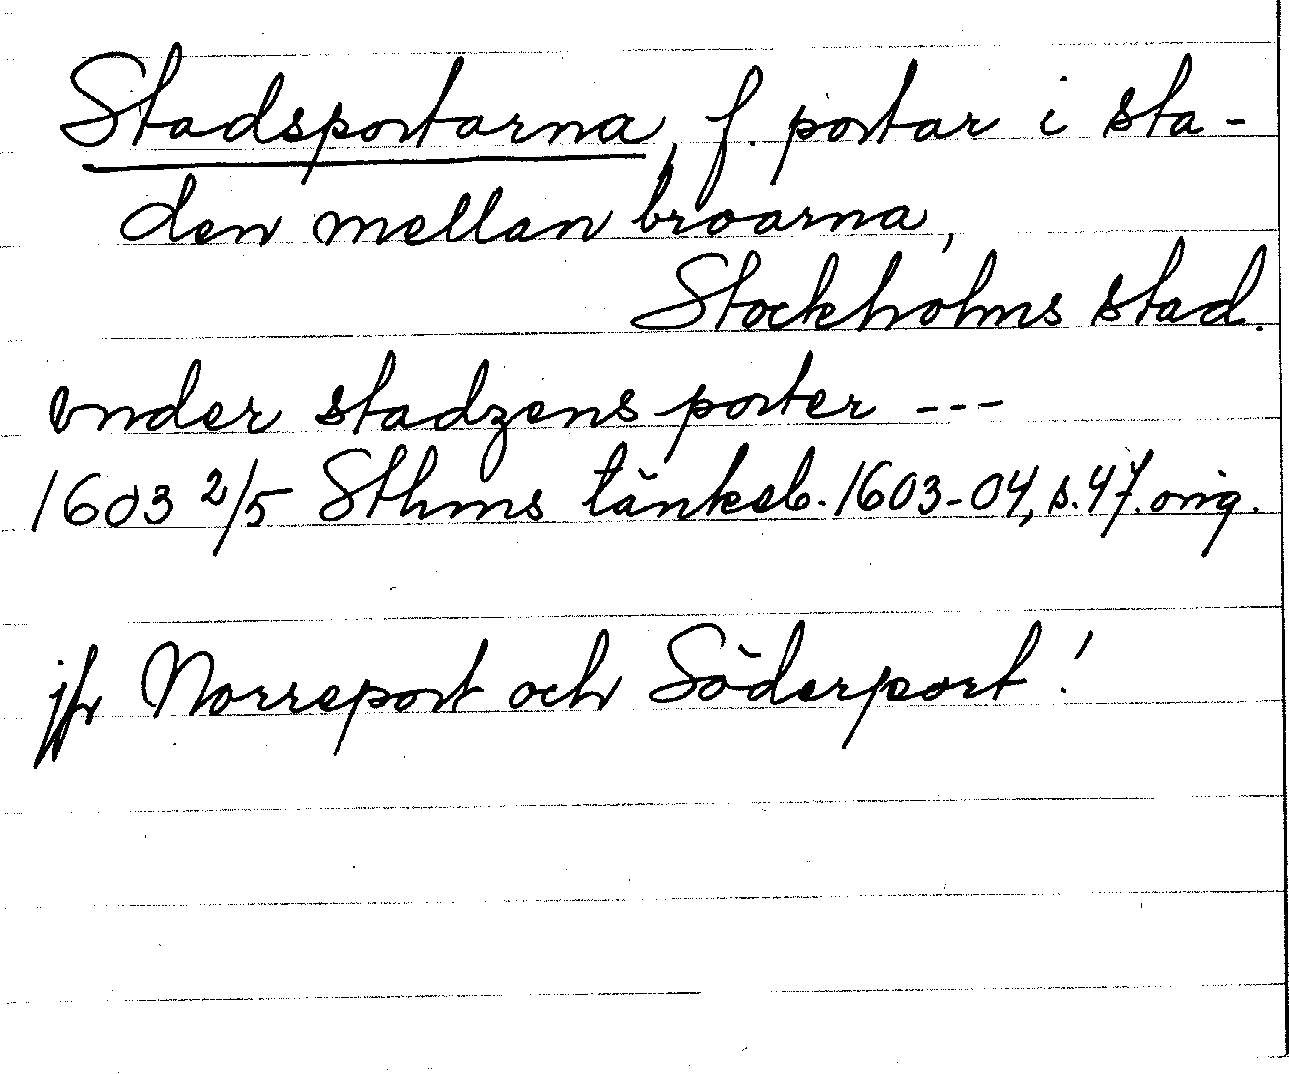 Stadsportarna, f. portar i sta-
den mellan broarna,
Stockholms stad.
vnder stadzens porter ---
1603 2/5 Sthms tänkeb. 1603-04, s. 47. orig.
jfr Norreport och Söderport!